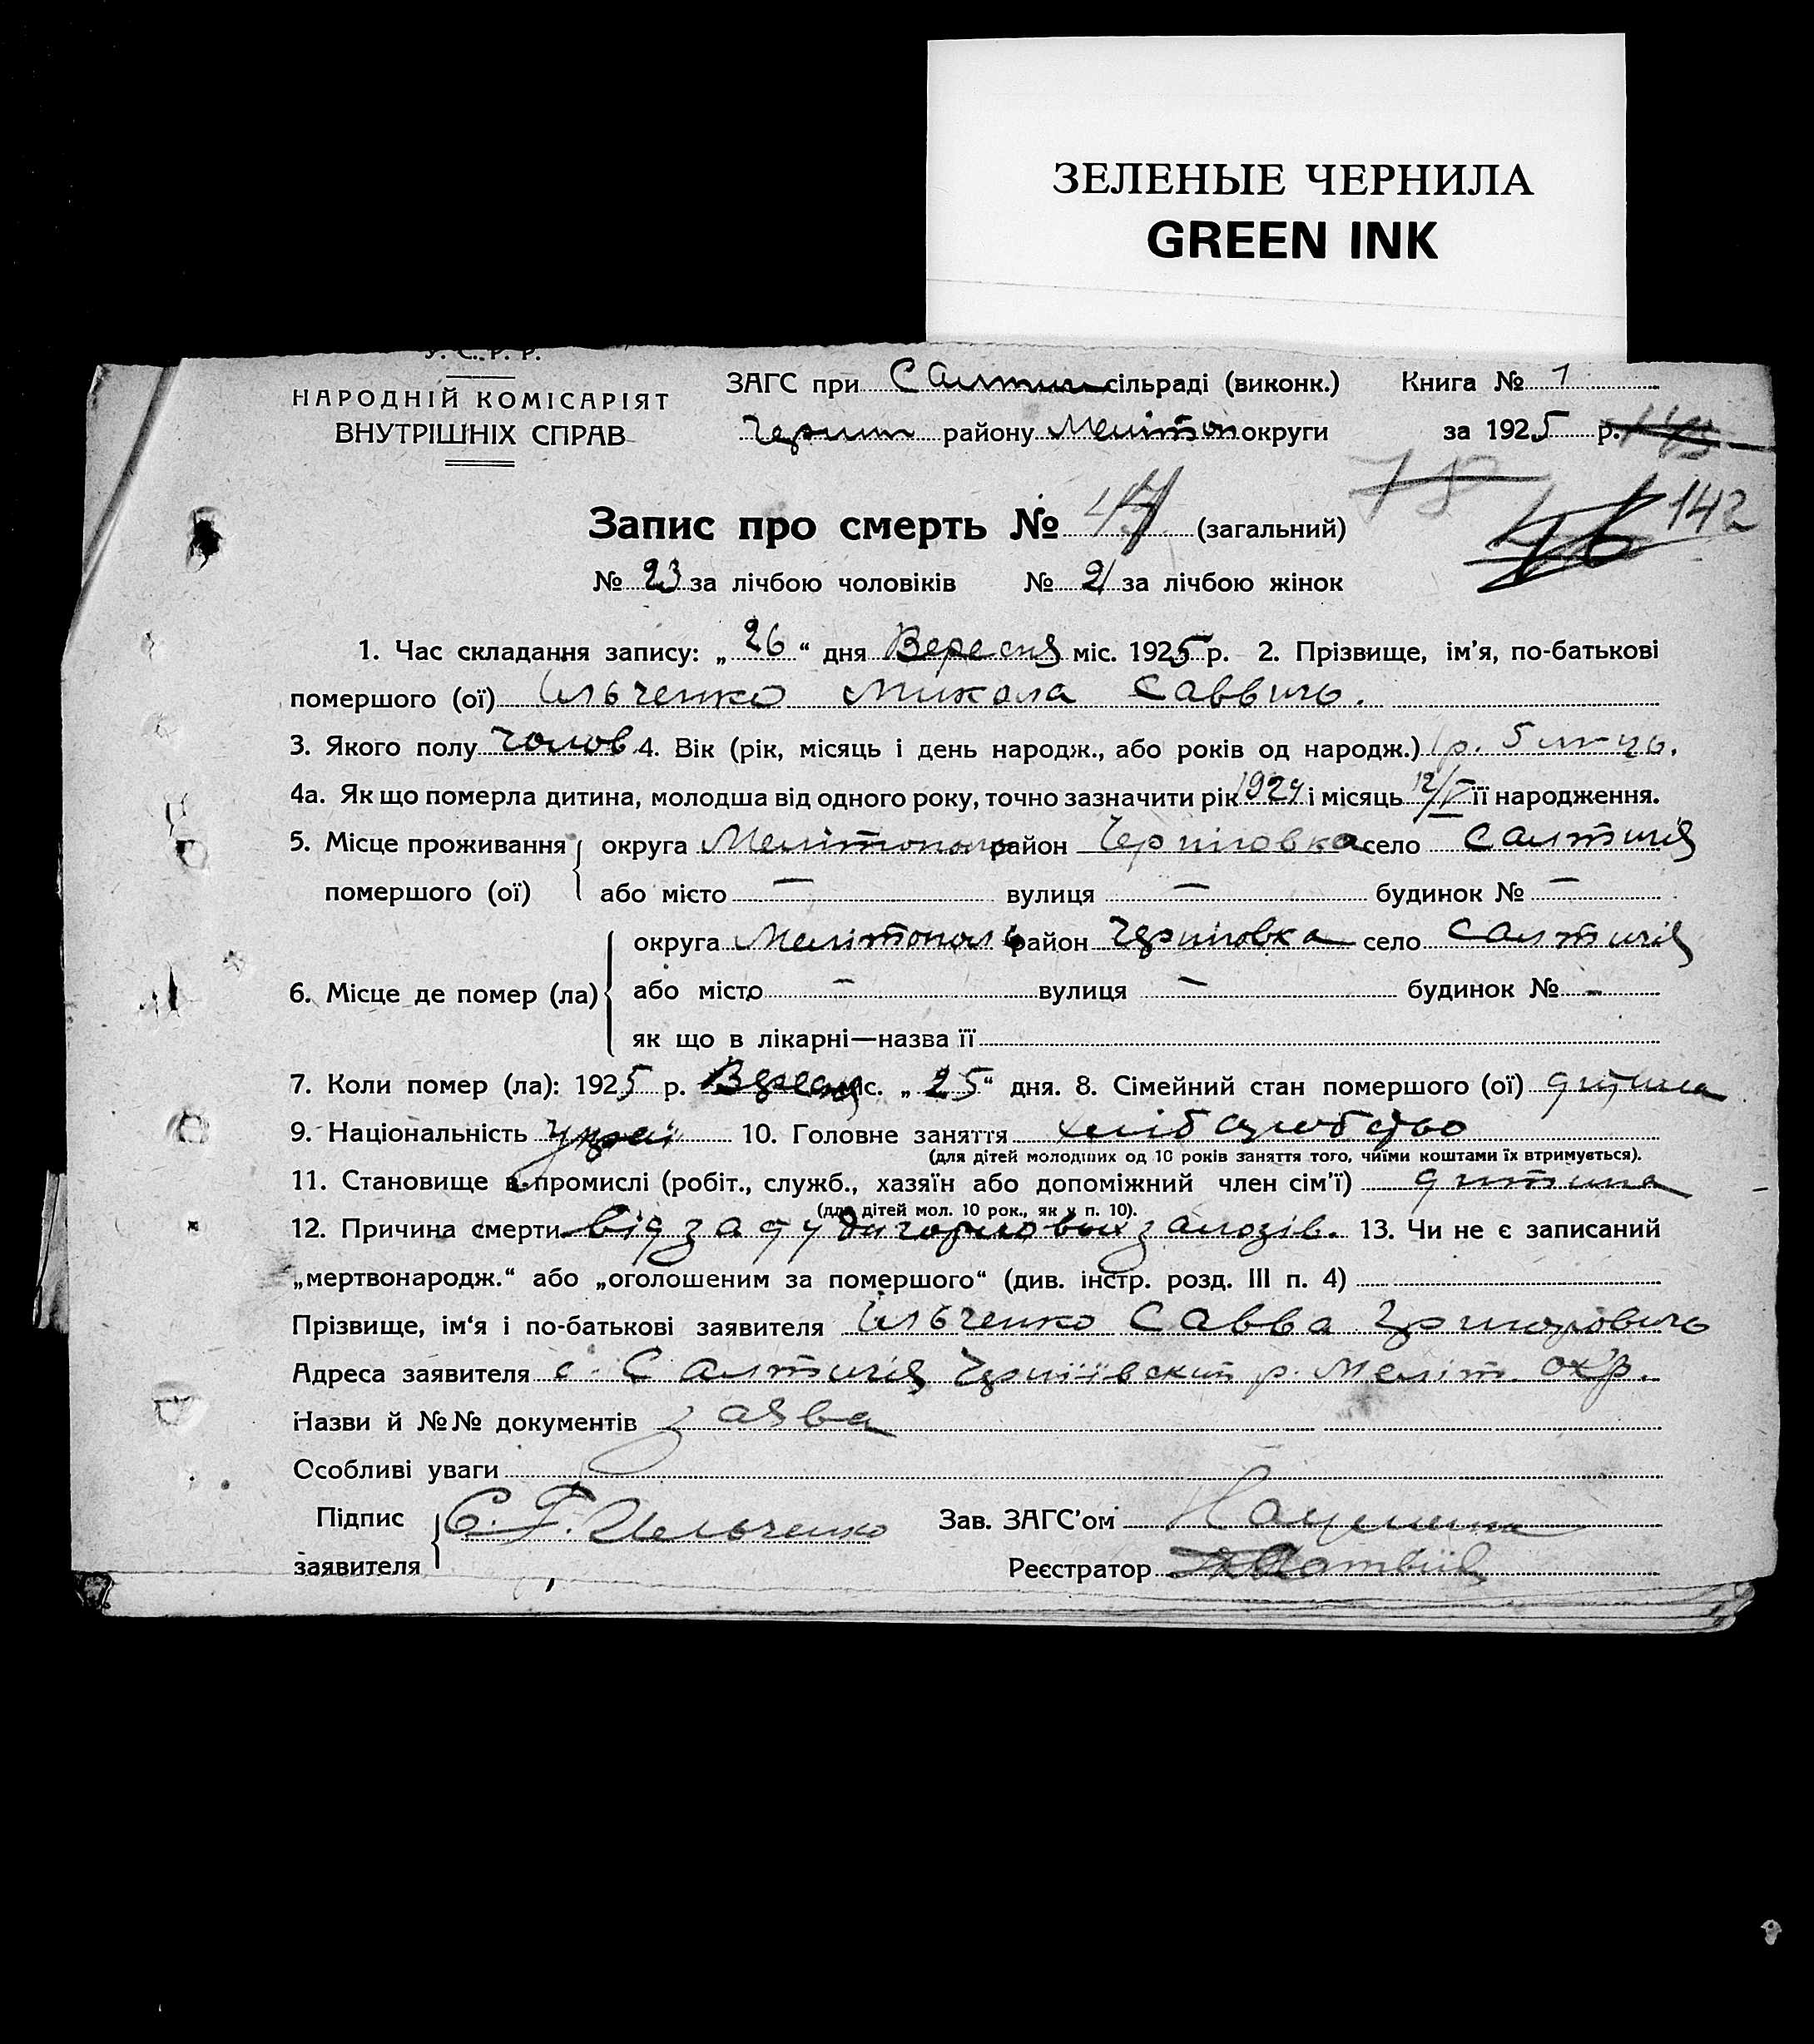 ЗЕЛЕНЫЕ ЧЕРНИЛА
GREEN INK
У. С. Р. Р.
НАРОДНІЙ КОМІСАРІЯТ
ВНУТРІШНІХ СПРАВ
ЗАГС при Салтич сільраді (виконк.)
Черниг району Меліто́п округи
Книга № 1
за 1925 р.
142
Запис про смерть № (загальний)
№ 23 за лічбою чоловіків № 21 за лічбою жінок
1. Час складання запису: „26“ дня Вересня міс. 1925 р. 2. Прізвище, ім’я, по-батькові
помершого (ої) Ильченко Микола Саввичь.
3. Якого полу чолов 4. Вік (рік, місяць і день народж., або років од народж.) 1 р. 5
4а. Як що померла дитина, молодша від одного року, точно зазначити рік 1924 і місяць 12/V її народження.
5. Місце проживання помершого (ої) округа Мелітополь район Черніговка село Салтичія
або місто — вулиця — будинок № —
6. Місце де помер (ла) округа Мелітополь район Черніговка село Салтичія
або місто — вулиця — будинок № -
як що в лікарні—назва її
7. Коли помер (ла): 1925 р. Вересня міс. „25“ дня. 8. Сімейний стан помершого (ої) дитина
9. Національність Украї 10. Головне заняття хліборобство
(для дітей молодших од 10 років заняття того, чиїми коштами їх втримується).
11. Становище в промислі (робіт., служб., хазяїн або допоміжний член сім’ї) дитина
(для дітей мол. 10 рок., як у п. 10).
12. Причина смерти від заду 13. Чи не є записаний
„мертвонародж.“ або „оголошеним за помершого“ (див. інстр. розд. III п. 4)
Прізвище, ім‘я і по-батькові заявителя Ильченко Савва Григоровичь
Адреса заявителя с. Салтичія р. Меліт. окр.
Назви й №№ документів заява
Особливі уваги
Підпис заявителя С. Г. Ильченко
Зав. ЗАГС’ом
Реєстратор